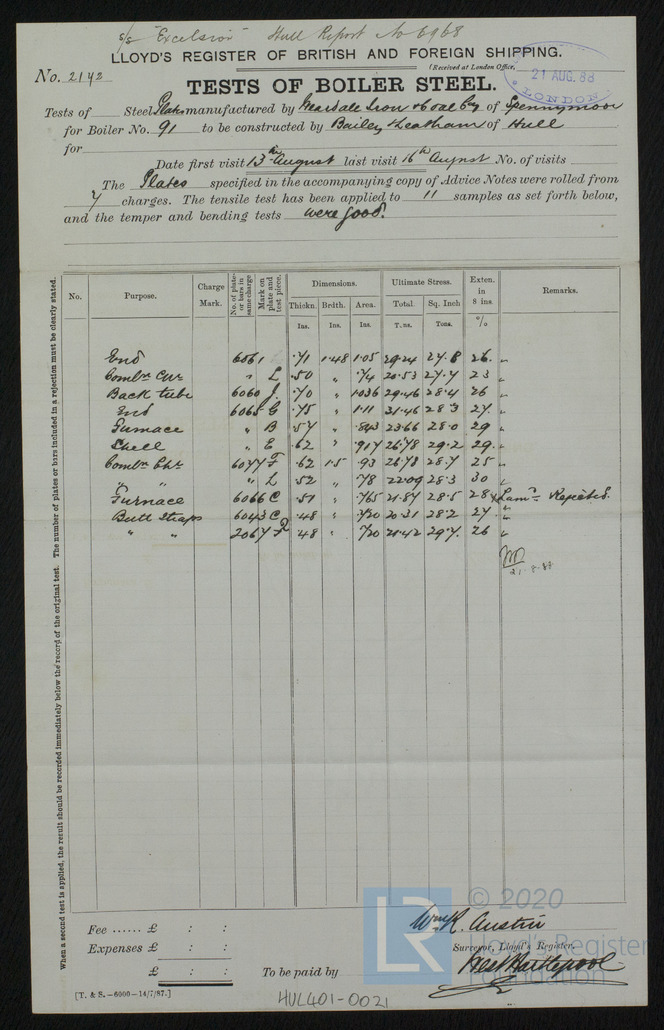 s/s "Excelsior" Hull Report No 6968
LLOYD'S REGISTER OF BRITISH AND FOREIGN SHIPPING.
No. 2142
(Received at London Office,
21 AUG. 88
LONDON
TESTS OF BOILER STEEL.
Tests of Steel Plates manufactured by Weardale Iron & Coal Co of Spennymoor
for Boiler No. 91 to be constructed by Bailey & Leatham of Hull
for
Date first visit 13th August last visit 16th August No. of visits
The Plates specified in the accompanying copy of Advice Notes were rolled from
7 charges. The tensile test has been applied to 11 samples as set forth below,
and the temper and bending tests were good.
When a second test is applied, the result should be recorded immediately below the record of the original test. The number of plates or bars included in a rejection must be clearly stated.
No. Purpose. Charge Mark. No. of plates or bars in same charge Mark on plate and test piece. Dimensions. Ultimate Stress. Exten. in 8 ins. Remarks.
Thickn. Brdth. Area. Total. Sq. Inch
Ins. Ins. Ins. Tons. Tons. %
End 6061 .71 1.48 1.05 29.24 27.8 26 "
Combn Chr " L .50 " .74 20.53 27.7 23 "
Back tube 6060 J .70 " 1.036 29.46 28.4 26 "
End 6065 G .75 " 1.11 31.46 28.3 27 "
Furnace " B .57 " .843 23.66 28.0 29 "
Shell " E .62 " .917 26.78 29.2 29 "
Combn Chr 6077 F .62 1.5 .93 26.73 28.7 25 "
" " " L .52 " .78 22.09 28.3 30 "
Furnace 6066 C .51 " .765 21.87 28.5 28 Lamn Rejected.
Butt Straps 6043 C .48 " .720 20.31 28.2 27 "
" " 2067 F .48 " .720 21.42 29.7 26 "
21.8.88
Fee ...... £ : :
Expenses £ : :
£ : :
To be paid by
Wm R. Austin
Surveyor, Lloyd's Register.
West Hartlepool
[T. & S.—6000—14/7/87.]
HUL401-0021
LR
© 2020
Lloyd's Register
Foundation